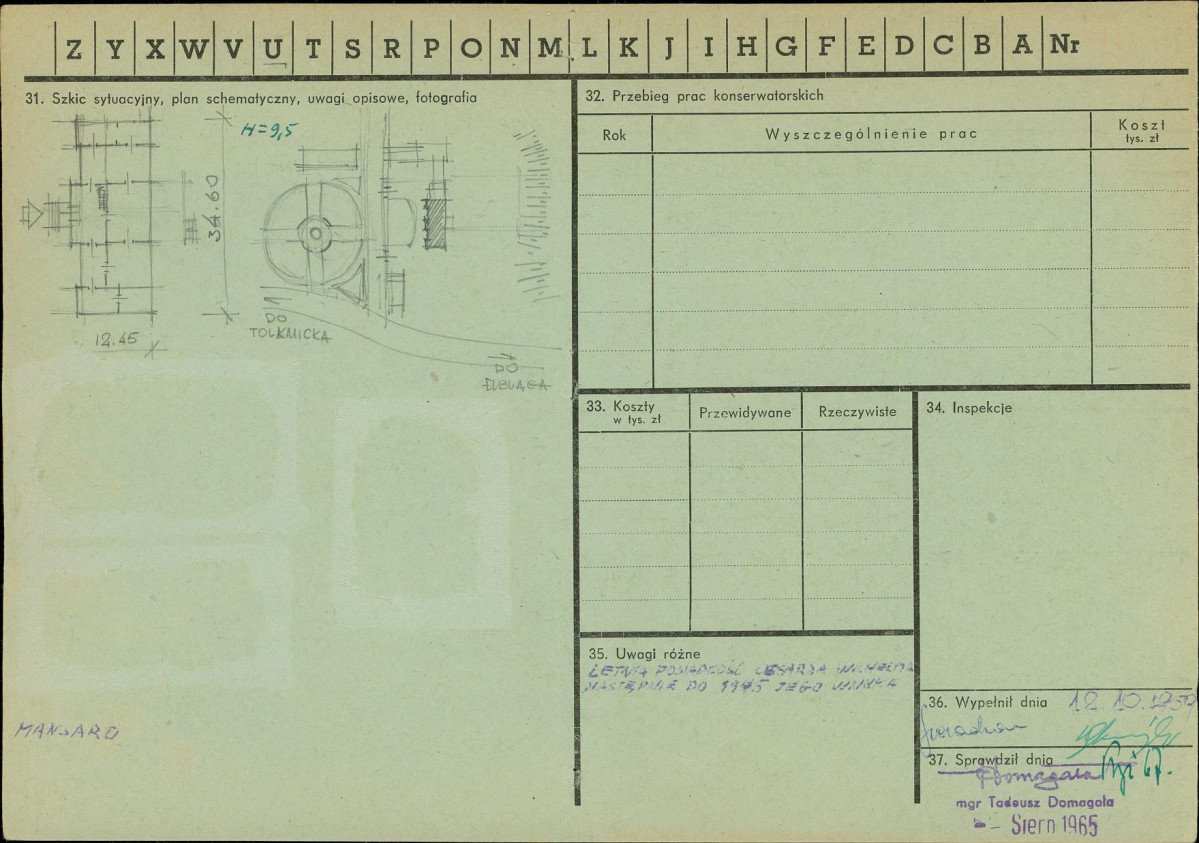 Z Y X W V U T S R P O N M L K J I H G F E D C B A Nr
31. Szkic sytuacyjny, plan schematyczny, uwagi opisowe, fotografia
H=9,5
34.60
12.45
DO
TOLKMICKA
DO
ELBLĄGA
MANSARD
32. Przebieg prac konserwatorskich
Rok
Wyszczególnienie prac
Koszt
tys. zł
33. Koszty
w tys. zł
Przewidywane
Rzeczywiste
34. Inspekcje
35. Uwagi różne
LETNIA POSIADŁOŚĆ CESARZA WILHELMA
NASTĘPNIE DO 1945 JEGO WNUKA
36. Wypełnił dnia
12.10.1959
37. Sprawdził dnia
Domagała
mgr Tadeusz Domagała
Sierp 1965